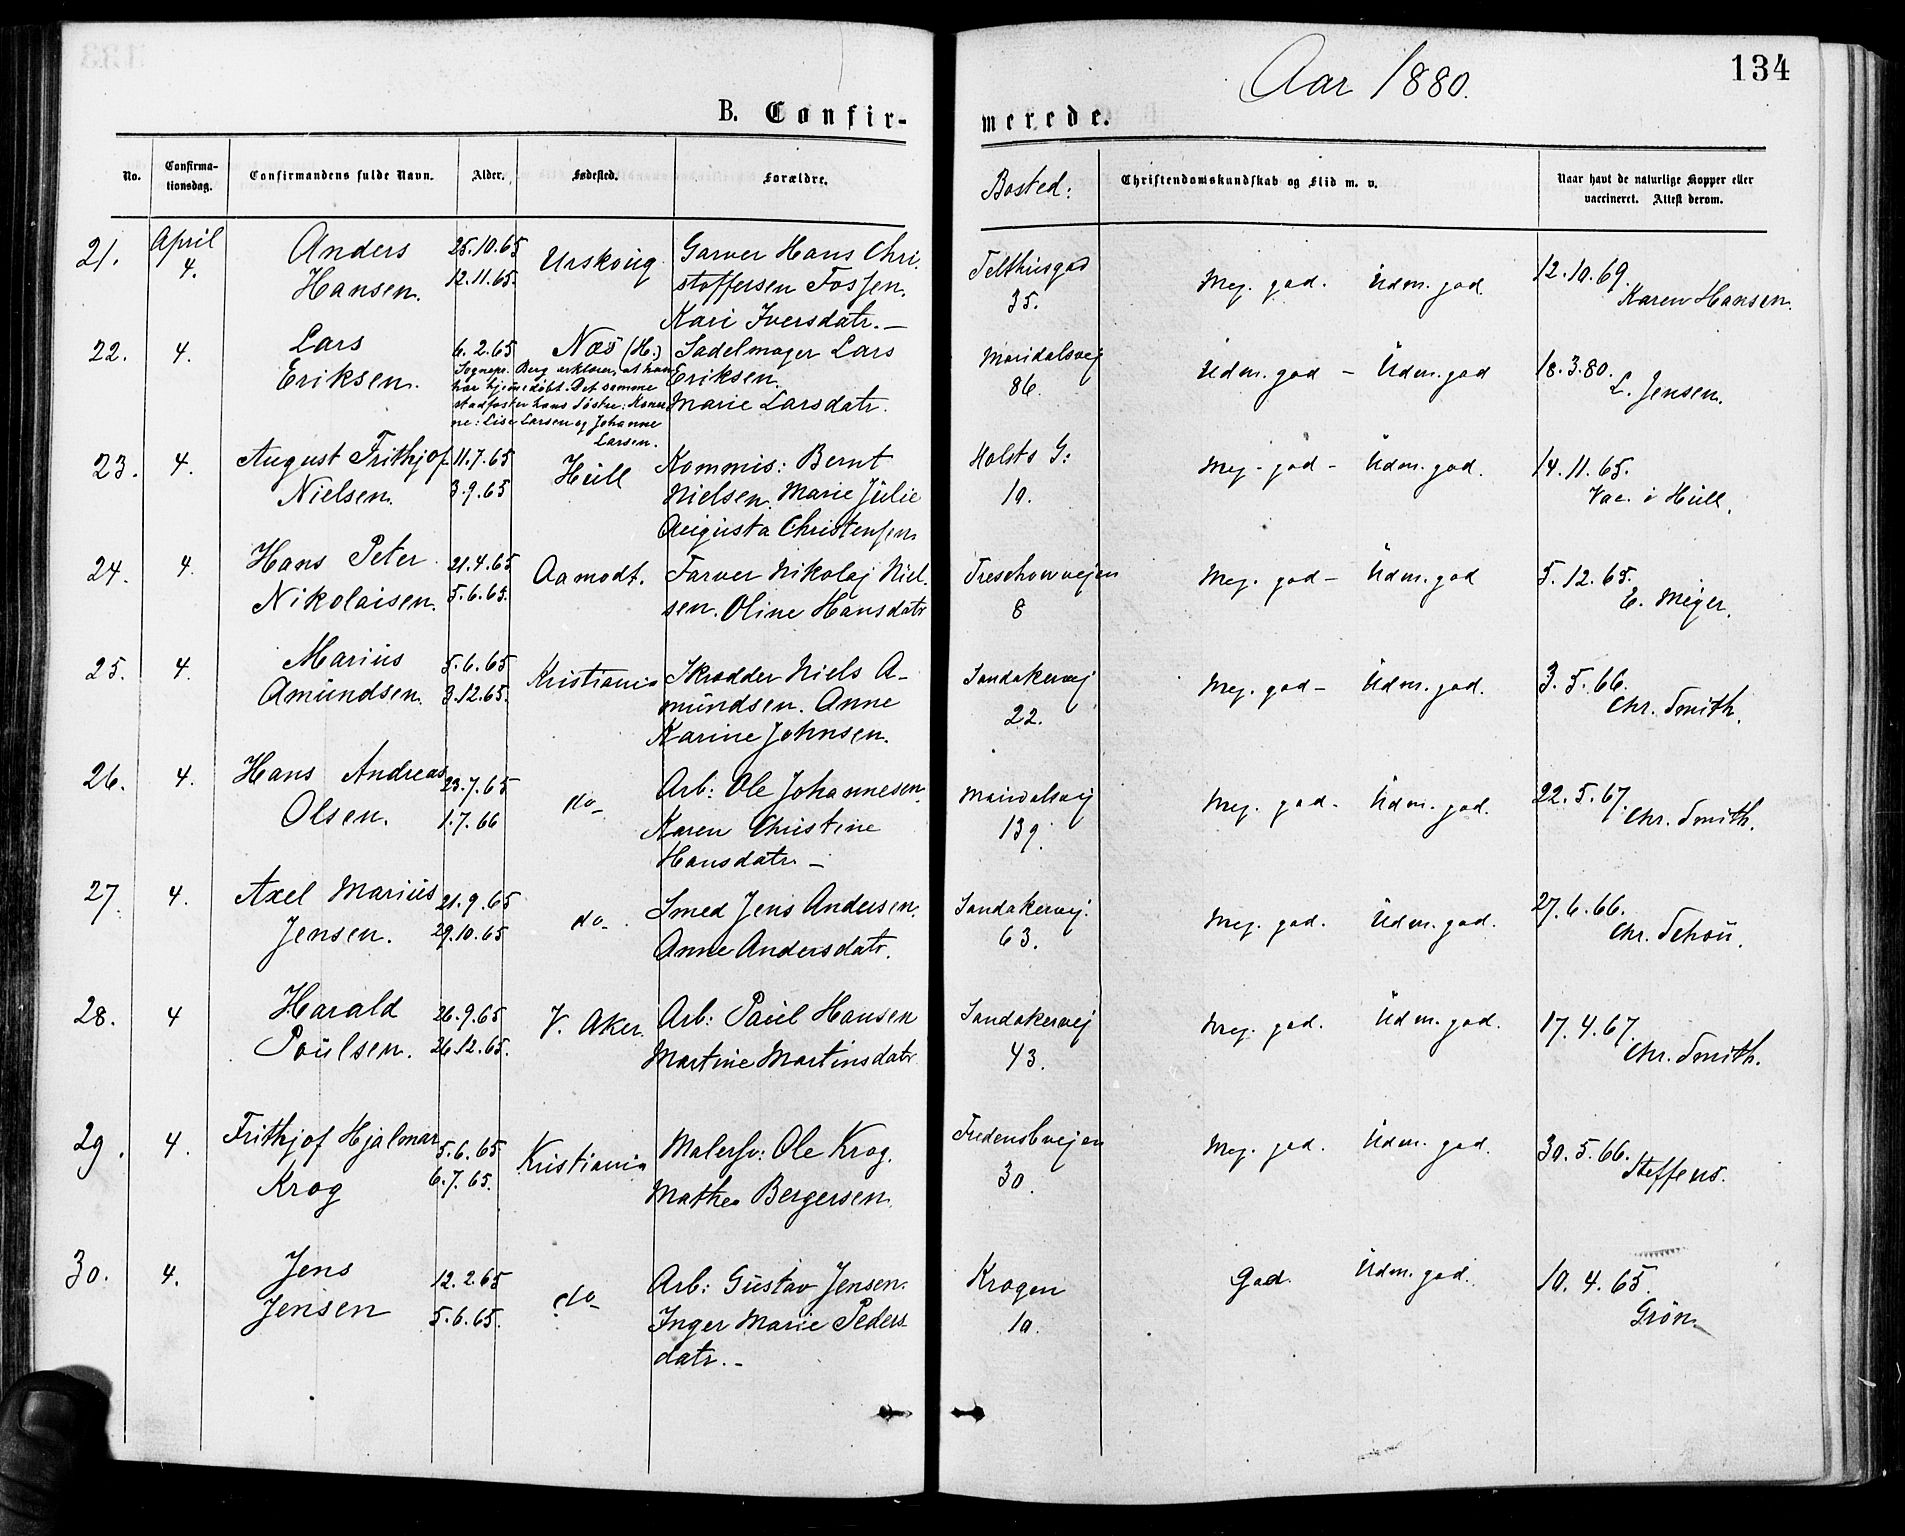 Aar 1880.
134
B. Confir-
merede.
No.
Confirma-
tionsdag.
Confirmandens fulde Navn.
Alder.
Fødested.
Forældre.
Bosted:
Christendomskundskab og Flid m. v.
Naar havt de naturlige Kopper eller
vaccineret. Attest derom.
21. April 4. Anders Hansen. 25.10.65 12.11.65. Urskoug Garver Hans Chri-
stoffersen Fossen.
Kari Iversdatr. —
Telthusgad 35. Meg. god. Üdm. god. 12.10.69. Karen Hansen.
22. 4. Lars Eriksen. 6.2.65 Næs (H.) Sadelmager Lars
Eriksen.
Marie Larsdatr.
Sognepr. Berg erklærer, at han
har hjemedøbt. Det samme
stadfæster hans Søstre: Kone
ne: Lise Larsen og Johanne
Larsen.
Maridalsvej 86. Üdm. god – Üdm. god 18.3.80. L. Jensen.
23. 4. August Frithjof Nielsen. 11.7.65 3.9.65 Hüll Kommis: Bernt
Nielsen. Marie Jülie
Aügüsta Christensen
Holsts G: 10. Meg. god – Üdm. god. 14.11.65. Vac. i Hüll.
24. 4. Hans Peter Nikolaisen. 21.4.65 5.6.65. Aamodt. Farver Nikolej Niel-
sen. Oline Hansdatr
Treschowvejen 8 Meg. god – Üdm. god 5.12.65. E. Meyer.
25. 4. Mariüs Amündsen. 5.6.65 3.12.65. Kristiania Skrædder Niels A-
mündsen. Anne
Karine Johnsen.
Sandakervej 22. Meg. god – Üdm. god. 3.5.66. Chr. Smith.
26. 4. Hans Andreas Olsen. 23.7.65 1.7.66 do Arb: Ole Johannesen.
Karen Christine
Hansdatr. –
Maridalsvej 139. Meg. god. Üdm. god. 22.5.67. Chr. Smith.
27. 4. Axel Mariüs Jensen. 21.9.65 29.10.65 do Smed Jens Andersen.
Anne Andersdatr.
Sandakervej. 63. Meg. god. Üdm. god. 27.6.66. Chr. Schoü.
28. 4 Harald Poülsen. 26.9.65 26.12.65. V. Aker Arb: Paül Hansen
Martine Martinsdatr
Sandakervej 43. Meg. god. Üdm. god. 17.4.67. Chr. Smith.
29. 4. Frithjof Hjalmar Krog 5.6.65 6.7.65. Kristiania Malersv: Ole Krog.
Mathea Bergersen.
Fredensbvejen 30. Meg. god. Üdm. god. 30.5.66. Steffens.
30. 4. Jens Jensen 12.2.65 5.6.65. do Arb: Güstav Jensen.
Inger Marie Peders-
datr. –
Krogen 10. God. Üdm. god. 10.4.65. Grøn.